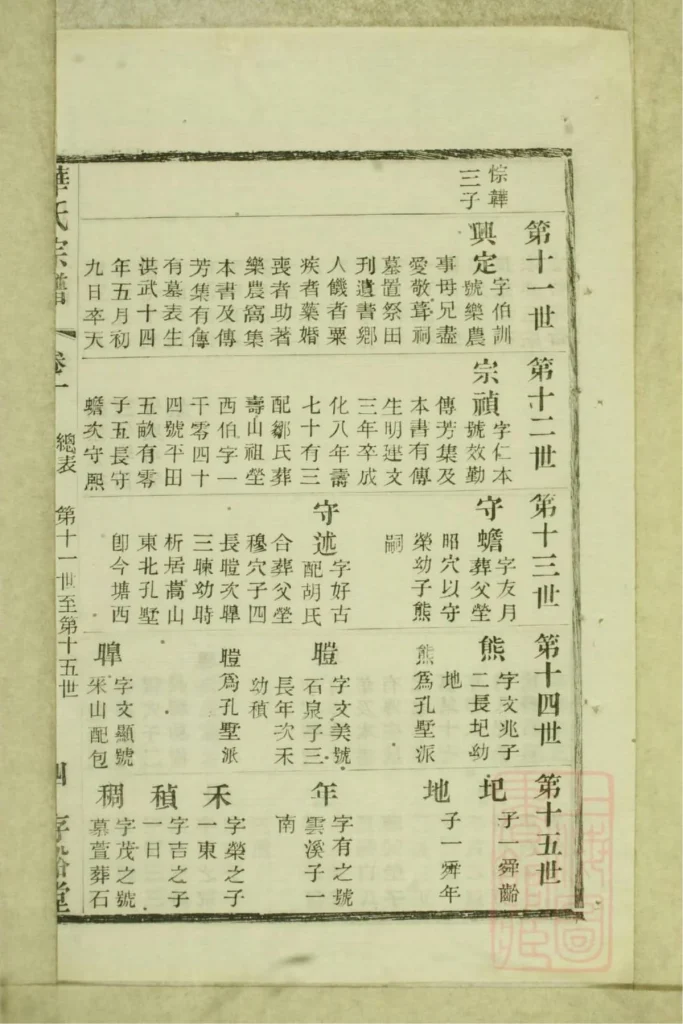 悰韡
三子
第十一世
興定
字伯訓
號樂農
事母兄盡
愛敬葺祠
墓置祭田
刊遺書鄉
人饑者粟
疾者藥婚
喪者助著
樂農窩集
本書及傳
芳集有傳
有墓表生
洪武十四
年五月初
九日卒天
第十二世
宗禎
字仁本
號效勤
傳芳集及
本書有傳
生明建文
三年卒成
化八年壽
七十有三
配鄒氏葬
壽山祖塋
西伯字一
千零四十
四號平田
五畝有零
子五長守
蟾次守熙
第十三世
守蟾
字友月
葬父塋
昭穴以守
榮幼子熊
嗣
守述
字好古
配胡氏
合葬父塋
穆穴子四
長暟次瞕
三暕幼時
析居嵩山
東北孔墅
卽今塘西
第十四世
熊
字文兆子
二長圯幼
地
熊爲孔墅派
暟
字文美號
石泉子三
長年次禾
幼稹
暟爲孔墅派
字文顯號
釆山配包
第十五世
圯
子一舜齡
地
子一舜年
年
字有之號
雲溪子一
南
禾
字榮之子
一東
稹
字吉之子
一日
稠
字茂之號
慕萱葬石
華氏宗譜
卷一
總表
第十一世至第十五世
四